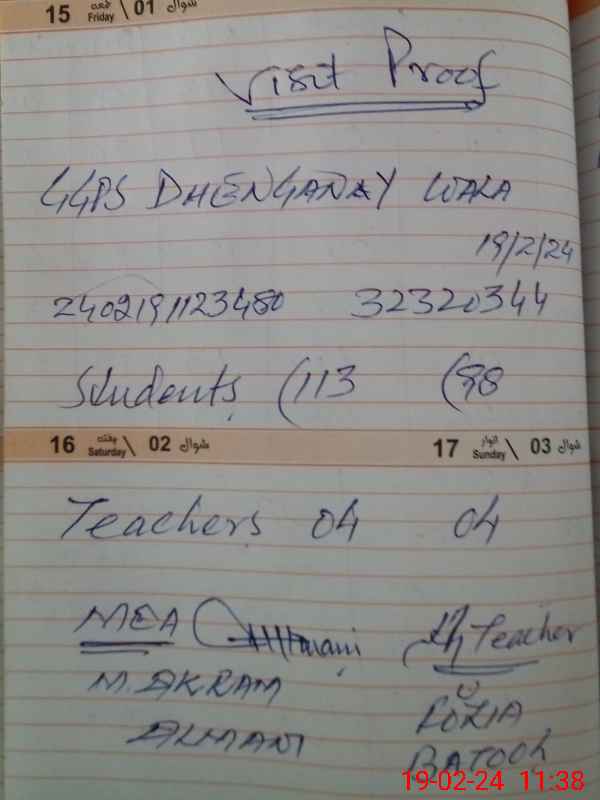 15 جمعه Friday \ 01 شوال
Visit Proof
GGPS DHENGANAY WALA
19/2/24
2402191123480 32320344
Students (113 (98
16 ہفتہ Saturday \ 02 شوال 17 اتوار Sunday \ 03 شوال
Teachers 04 04
MEA Teacher
M. AKRAM FOZIA
ALMANI BATOOL
19-02-24 11:38